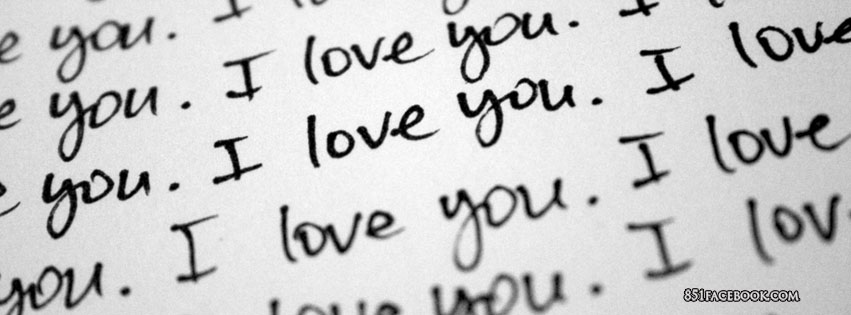 e you. I
e you. I love you. I
e you. I love you. I love
you. I love you. I love
love you. I lov
851FACEBOOK.COM